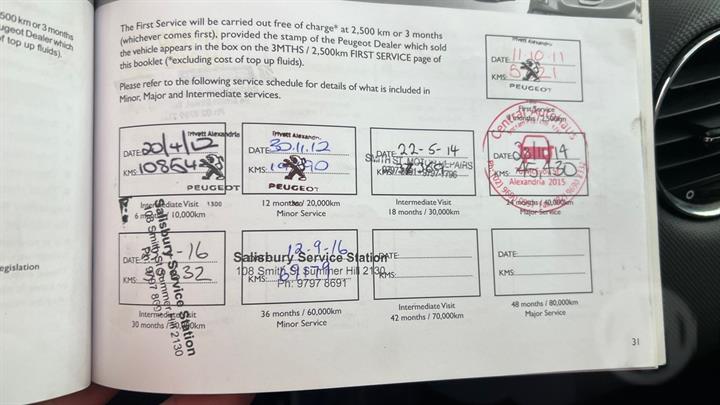 500 km or 3 months
Peugeot Dealer which
of top up fluids).
egislation
The First Service will be carried out free of charge* at 2,500 km or 3 months
(whichever comes first), provided the stamp of the Peugeot Dealer which sold
the vehicle appears in the box on the 3MTHS / 2,500km FIRST SERVICE page of
this booklet (*excluding cost of top up fluids).
Please refer to the following service schedule for details of what is included in
Minor, Major and Intermediate services.
DATE: 11-10-11
KMS:
PEUGEOT
First Service
Trivett Alexandria
DATE: 20/4/12
KMS: 10854
PEUGEOT
Intermediate Visit
10,000km
Trivett Alexandria
DATE: 30.11.12
KMS:
PEUGEOT
12 months/ 20,000km
Minor Service
DATE: 22-5-14
SMITH ST. MOTOR REPAIRS
KMS:
Intermediate Visit
18 months / 30,000km
DATE:
KMS: 45,430
Alexandria 2015
24 months / 40,000km
Major Service
DATE: -16
KMS: 32
Salisbury Service Station
108 Smith St Summer Hill 2130
Ph: 9797 8691
Intermediate Visit
30 months /
DATE: 12-9-16
Salisbury Service Station
108 Smith St Summer Hill 2130
KMS:
Ph: 9797 8691
36 months / 60,000km
Minor Service
DATE:
KMS:
Intermediate Visit
42 months / 70,000km
DATE:
KMS:
48 months / 80,000km
Major Service
31